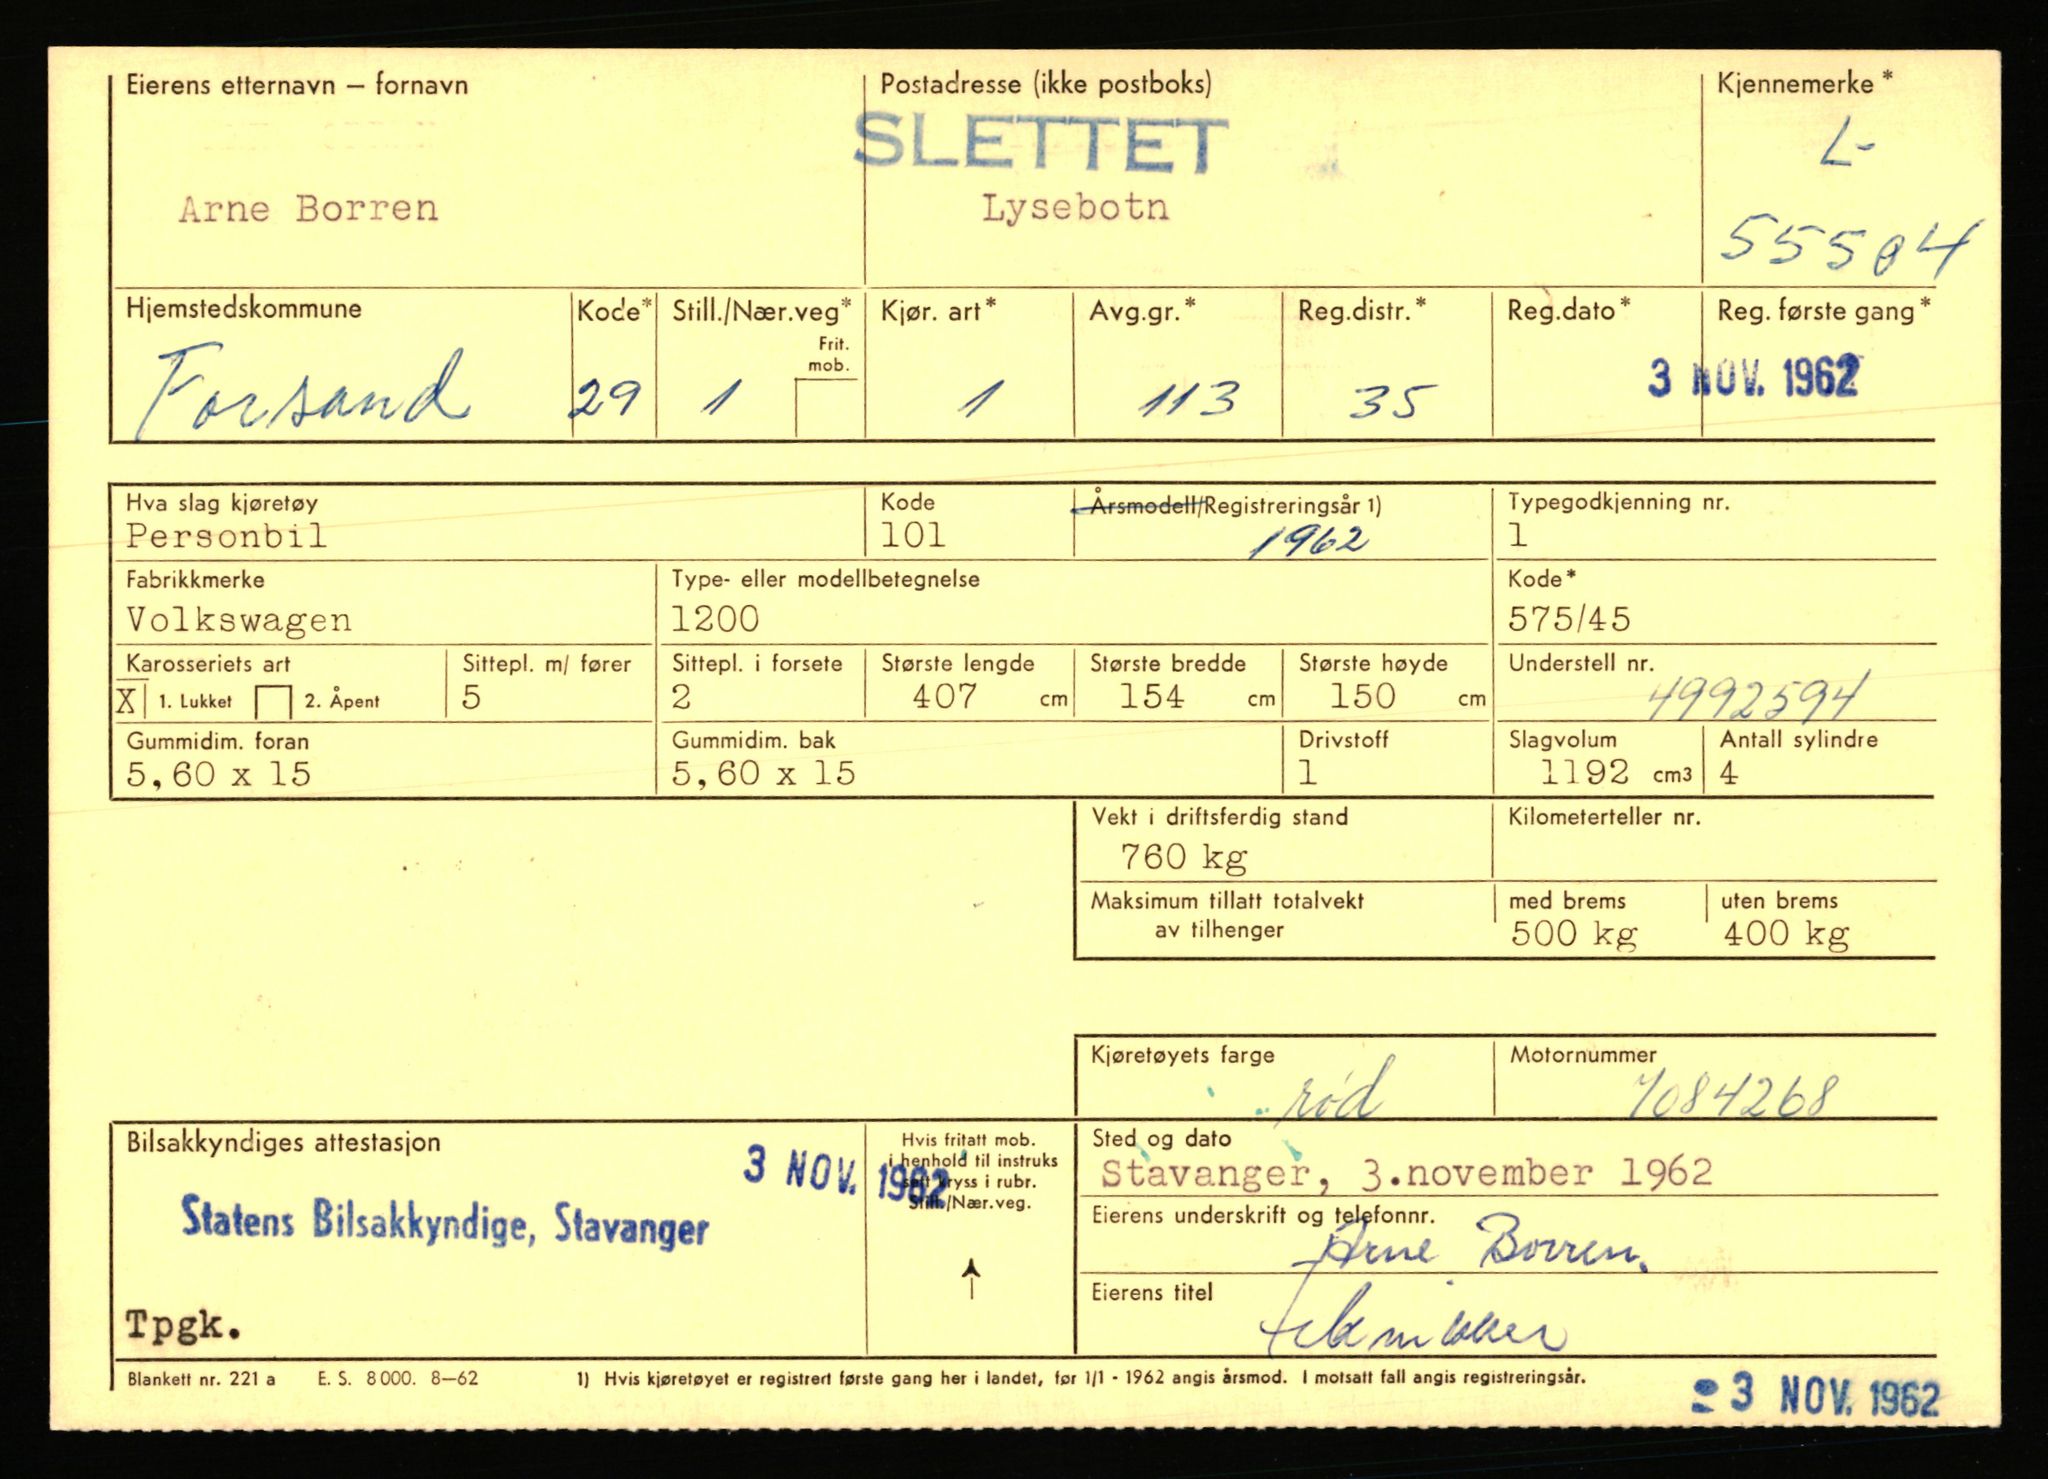 Eierens etternavn – fornavn Postadresse (ikke postboks) Kjennemerke*
SLETTET L-
Arne Borren Lysebotn
55504
Hjemstedskommune Kode* Still./Nær.veg* Kjør. art* Avg.gr.* Reg.distr.* Reg.dato* Reg. første gang*
Frit.
mob.
3 NOV. 1962
Forsand 29 1 1 113 35
Hva slag kjøretøy Kode Årsmodell/Registreringsår 1) Typegodkjenning nr.
Personbil 101 1962 1
Fabrikkmerke Type- eller modellbetegnelse Kode*
Volkswagen 1200 575/45
Karosseriets art Sittepl. m/ fører Sittepl. i forsete Største lengde Største bredde Største høyde Understell nr.
X 1. Lukket 2. Åpent 5 2 407 cm 154 cm 150 cm 4992594
Gummidim. foran Gummidim. bak Drivstoff Slagvolum Antall sylindre
5,60 x 15 5,60 x 15 1 1192 cm3 4
Vekt i driftsferdig stand Kilometerteller nr.
760 kg
Maksimum tillatt totalvekt med brems uten brems
av tilhenger 500 kg 400 kg
Kjøretøyets farge Motornummer
rød 7084268
Bilsakkyndiges attestasjon Hvis fritatt mob. Sted og dato
3 NOV. 1962 i henhold til instruks Stavanger, 3.november 1962
sett kryss i rubr.
Still./Nær.veg.
Statens Bilsakkyndige, Stavanger Eierens underskrift og telefonnr.
Arne Borren.
Eierens titel
Tpgk.
Blankett nr. 221 a E. S. 8000. 8–62 1) Hvis kjøretøyet er registrert første gang her i landet, før 1/1 - 1962 angis årsmod. I motsatt fall angis registreringsår.
3 NOV. 1962